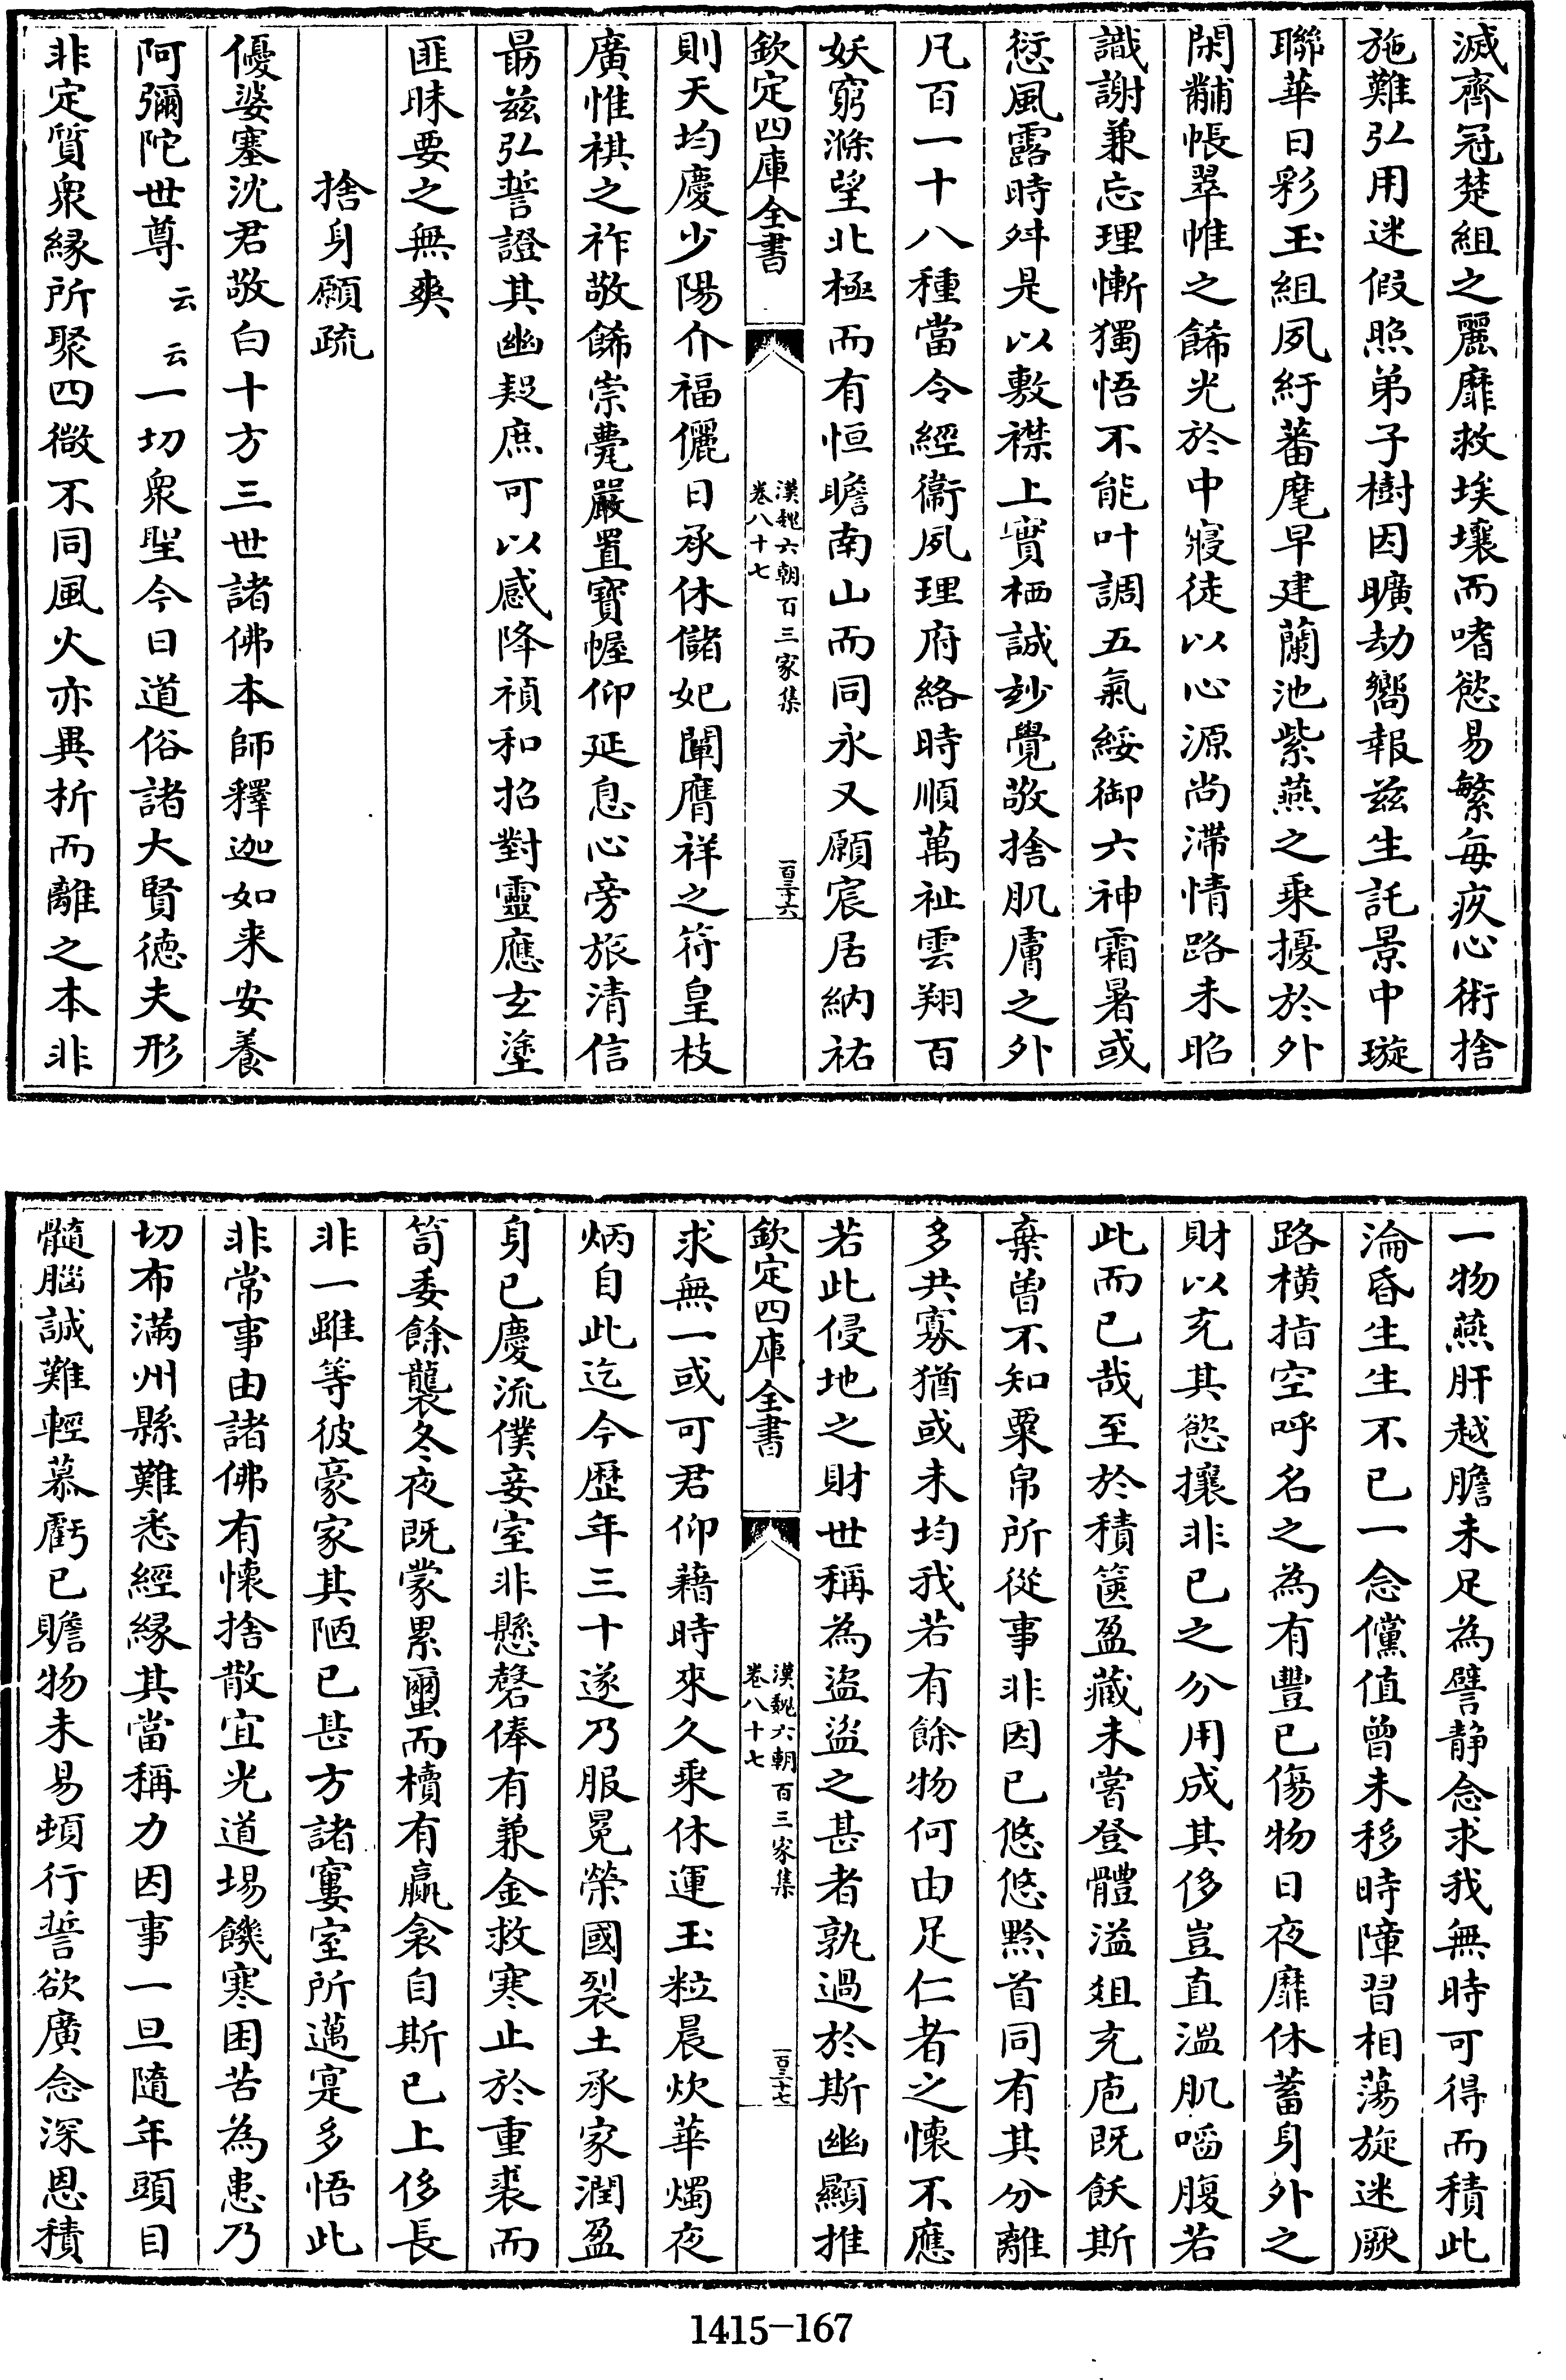 滅齊冠楚組之麗靡救埃壤而嗜慾易繁每疚心術捨
施難弘用迷假照弟子樹因曠劫嚮報兹生託景中璇
聯華日彩玉組夙紆蕃麾早建蘭池紫燕之乘擾於外
閑黼帳翠帷之餙光於中寢徒以心源尚滯情路未昭
識謝兼忘理慚獨悟不能叶調五氣綏御六神霜暑或
愆風露時舛是以敷襟上實栖誠妙覺敬捨肌膚之外
凡百一十八種當令經衞夙理府絡時順萬祉雲翔百
妖窮滌望北極而有恒瞻南山而同永又願宸居納祐
欽定四庫全書
漢魏六朝百三家集
卷八十七
百三十六
則天均慶少陽介福儷日承休儲妃闡膺祥之符皇枝
廣惟祺之祚敬餙崇薨嚴置寶幄仰延息心旁旅清信
朂兹弘誓證其幽疑庶可以感降禎和招對靈應玄塗
匪昧要之無爽
捨身願疏
優婆塞沈君敬白十方三世諸佛本師釋迦如来安養
阿彌陀世尊云云一切衆聖今日道俗諸大賢德夫形
非定質衆緣所聚四微不同風火亦異析而離之本非
一物燕肝越膽未足為譬静念求我無時可得而積此
淪昏生生不已一念儻值曾未移時障習相蕩旋迷厥
路横指空呼名之為有豐已傷物日夜靡休蓄身外之
財以充其慾攘非已之分用成其侈豈直温肌嗢腹若
此而已哉至於積篋盈藏未嘗登體溢俎充庖既飫斯
棄曽不知粟帛所從事非因已悠悠黔首同有其分離
多共寡猶或未均我若有餘物何由足仁者之懷不應
若此侵地之財世稱為盜盜之甚者孰過於斯幽顯推
欽定四庫全書
漢魏六朝百三家集
卷八十七
百三十七
求無一或可君仰藉時來久乘休運玉粒晨炊華燭夜
炳自此迄今歴年三十遂乃服冕榮國裂土承家潤盈
身已慶流僕妾室非懸磬俸有兼金救寒止於重裘而
笥委餘襲冬夜既蒙累蠒而櫝有贏衾自斯已上侈長
非一雖等彼豪家其陋已甚方諸窶室所邁寔多悟此
非常事由諸佛有懷捨散宜光道場饑寒困苦為患乃
切布滿州縣難悉經緣其當稱力因事一旦隨年頭目
髓腦誠難輕慕虧已贍物未易頓行誓欲廣念深恩積
1415-167